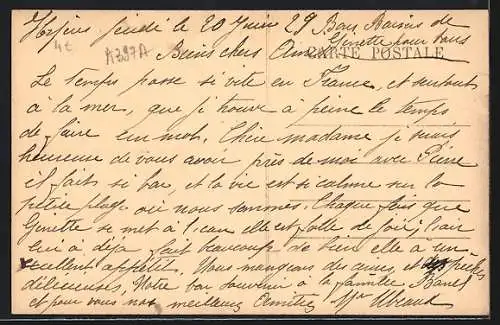 jeudi le 20 Juin 29 Bons Baisers de
Ginette pour vous
4€ A397A
Biens chers Amis CARTE POSTALE
Le Temps passe si vite en France, et surtout
à la mer, que je trouve à peine le temps
de faire un mot. Chère madame je suis
heureuse de vous avoir près de moi avec Pierre
il fait si bon, et la vie est si calme sur la
petite plage où nous sommes. Chaque fois que
Ginette se met à l'eau elle est folle de joie, l'air
lui a déja fait beaucoup de bien elle à un
excellent appétit. Nous mangeons des et des pêches
délicieuses, Notre bon souvenir à la famille
et pour vous nos meilleurs Amitiés Mr